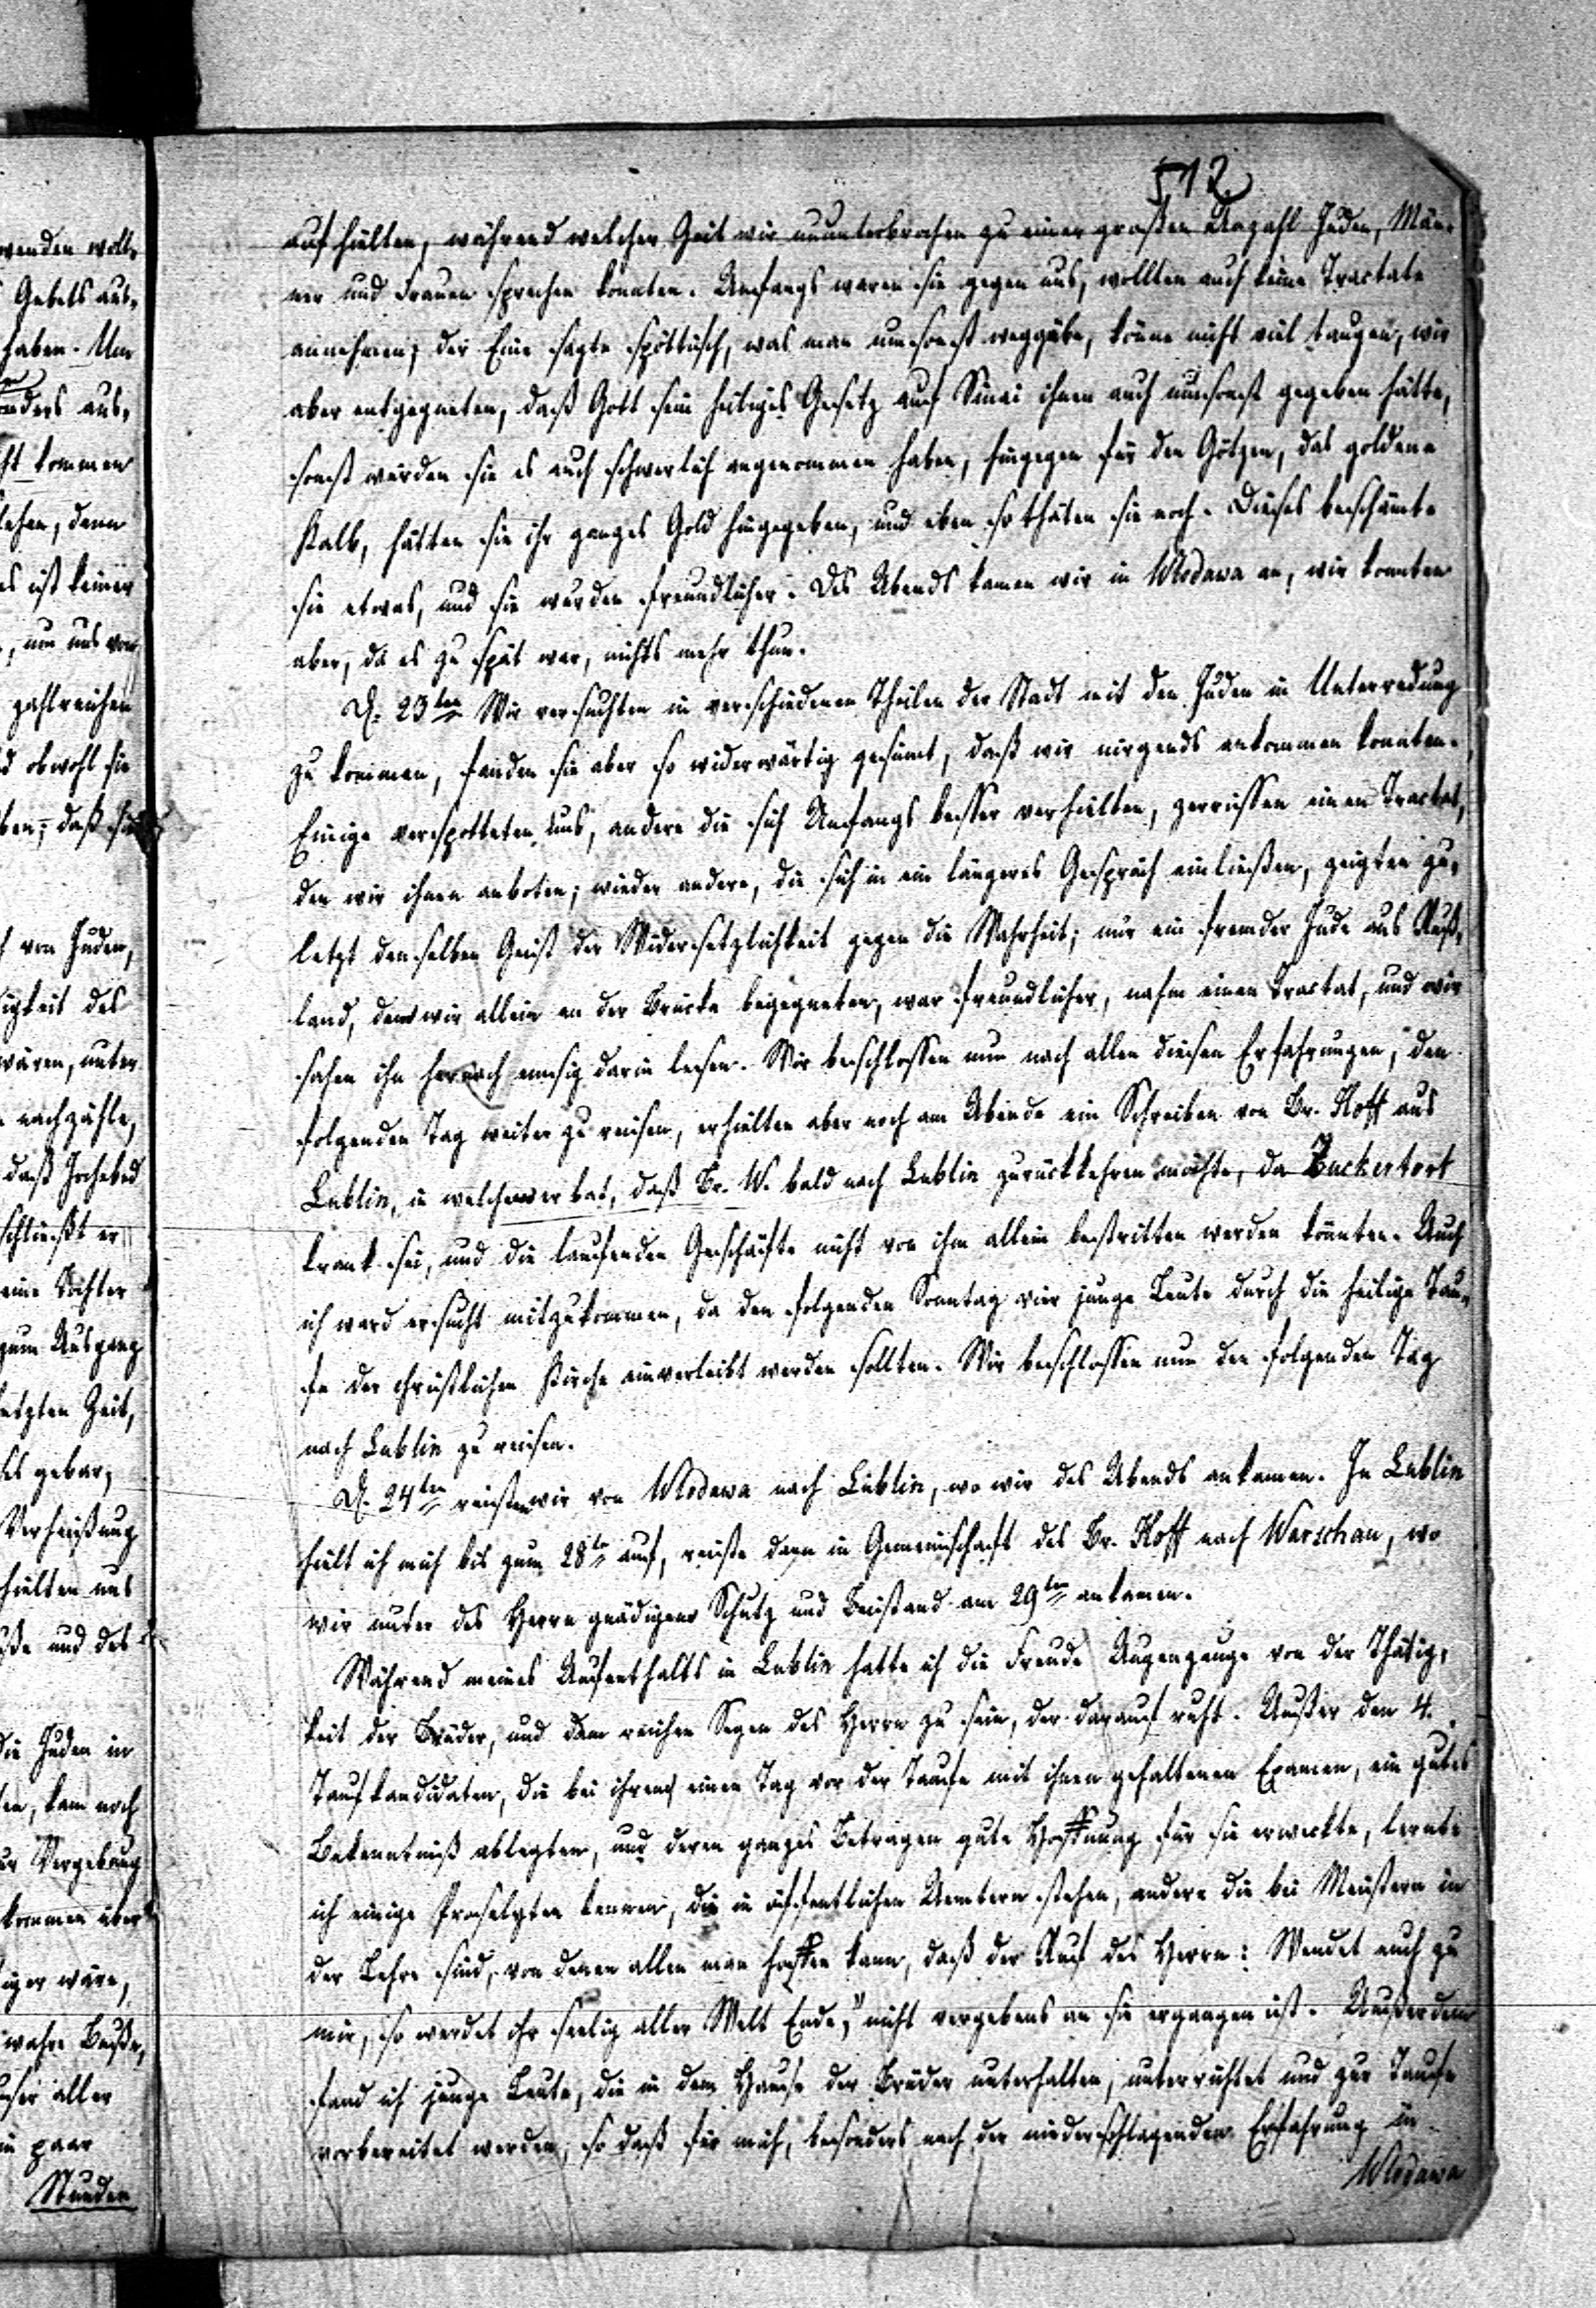 wenden woll-
Gebets aus-
haben. Um
anders aus-
ht kommen
sehen, denn
es ist keiner
, um uns von
zahlreichen
d obwohl sie
ben, daß sie
von Juden,
igkeit des
wären, unter
nachzähle,
daß Jochebed
schließt er
eine Tochter
zum Ausgang
letzten Zeit,
es gebar,
Verheißung
hielten uns
ße und des
die Juden in
ten, kam noch
ur Vergebung
kommen über
iger wäre,
wahre Buße,
unser aller
ein paar
Stunden
512
aufhielten, während welcher Zeit wir ununterbrochen zu einer großen Anzahl Juden, Män-
ner und Frauen sprechen konnten. Anfangs waren sie gegen uns, wollten auch keine Tractate
annehmen; der Eine sagte spöttisch, was man umsonst weggäbe, könne nicht viel taugen, wir
aber entgegneten, daß Gott sein heiliges Gesetz auf Sinai ihnen auch umsonst gegeben hätte,
sonst würden sie es auch schwerlich angenommen haben, hingegen für den Götzen, das goldene
Kalb, hätten sie ihr ganzes Gold hingegeben, und eben so thäten sie noch. Dieses beschämte
sie etwas, und sie wurden freundlicher. Des Abends kamen wir in Wlodawa an, wir konnten
aber, da es zu spät war, nichts mehr thun.
D. 23ten Wir versuchten in verschiedenen Theilen der Stadt mit den Juden in Unterredung
zu kommen, fanden sie aber so widerwärtig gesinnt, daß wir nirgends ankommen konnten.
Einige verspotteten uns, andere die sich Anfangs besser verhielten, zerrissen einen Tractat,
den wir ihnen anboten; wieder andere, die sich in ein längeres Gespräch einließen, zeigten zu-
letzt denselben Geist der Widersetzlichkeit gegen die Wahrheit; nur ein fremder Jude aus Ruß-
land, dem wir allein an der Brücke begegneten, war freundlicher, nahm einen Tractat, und wir
sahen ihn hernach emsig darin lesen. Wir beschlossen nun nach allen diesen Erfahrungen, den
folgenden Tag weiter zu reisen, erhielten aber noch am Abende ein Schreiben von Br. Hoff aus
Lublin, in welchem er bat, daß Br. W. bald nach Lublin zurückkehren möchte, da Zuckertort
krank sei, und die laufenden Geschäfte nicht von ihm allein bestritten werden könnten. Auch
ich ward ersucht mitzukommen, da den folgenden Sonntag vier junge Leute durch die heilige Tau-
fe der christlichen Kirche einverleibt werden sollten. Wir beschlossen nun den folgenden Tag
nach Lublin zu reisen.
D. 24ten reisten wir von Wlodawa nach Lublin, wo wir des Abends ankamen. In Lublin
hielt ich mich bis zum 28ten auf, reiste dann in Gemeinschaft des Br. Hoff nach Warschau, wo
wir unter des Herrn gnädigem Schutz und Beistand am 29ten ankamen.
Während meines Aufenthalts in Lublin hatte ich die Freude Augenzeuge von der Thätig-
keit der Brüder, und dem reichen Segen des Herrn zu sein, der darauf ruht. Außer den 4.
Taufkandidaten, die bei ihrem einen Tag vor der Taufe mit ihnen gehaltenen Examen, ein gutes
Bekenntniß ablegten, und deren ganzes Betragen gute Hoffnung für sie erweckte, lernte
ich einige Proselyten kennen, die in öffentlichen Aemtern stehen, andere die bei Meistern in
der Lehre sind, von denen allen man hoffen kann, daß der Ruf des Herrn: Wendet euch zu
mir, so werdet ihr seelig aller Welt Ende," nicht vergebens an sie ergangen ist. Außerdem
fand ich junge Leute, die in dem Hause der Brüder unterhalten, unterrichtet und zur Taufe
vorbereitet werden, so daß für mich, besonders nach der niederschlagenden Erfahrung in
Wlodawa